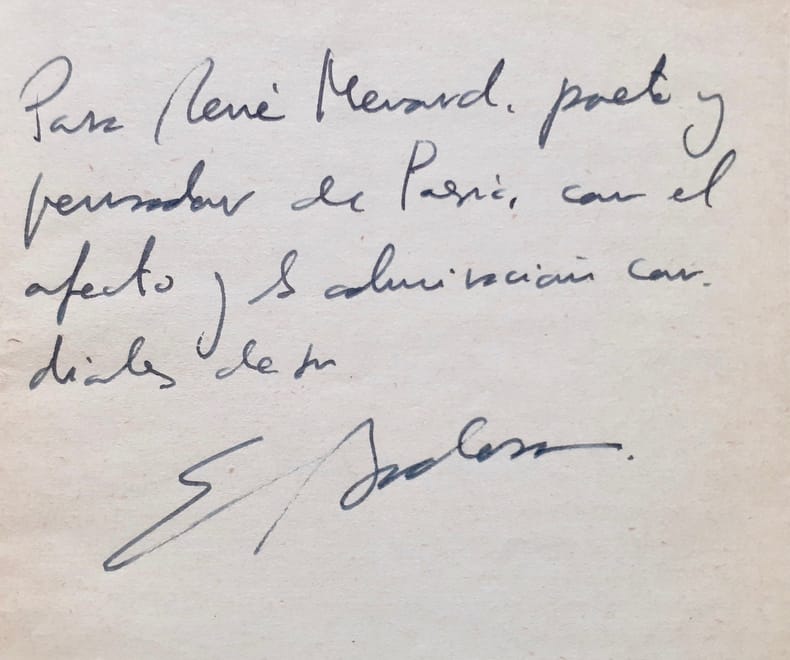 Para René Menard. poeta y
pensador de Poesía, con el
afecto y la admiración cor.
diales de su
E.